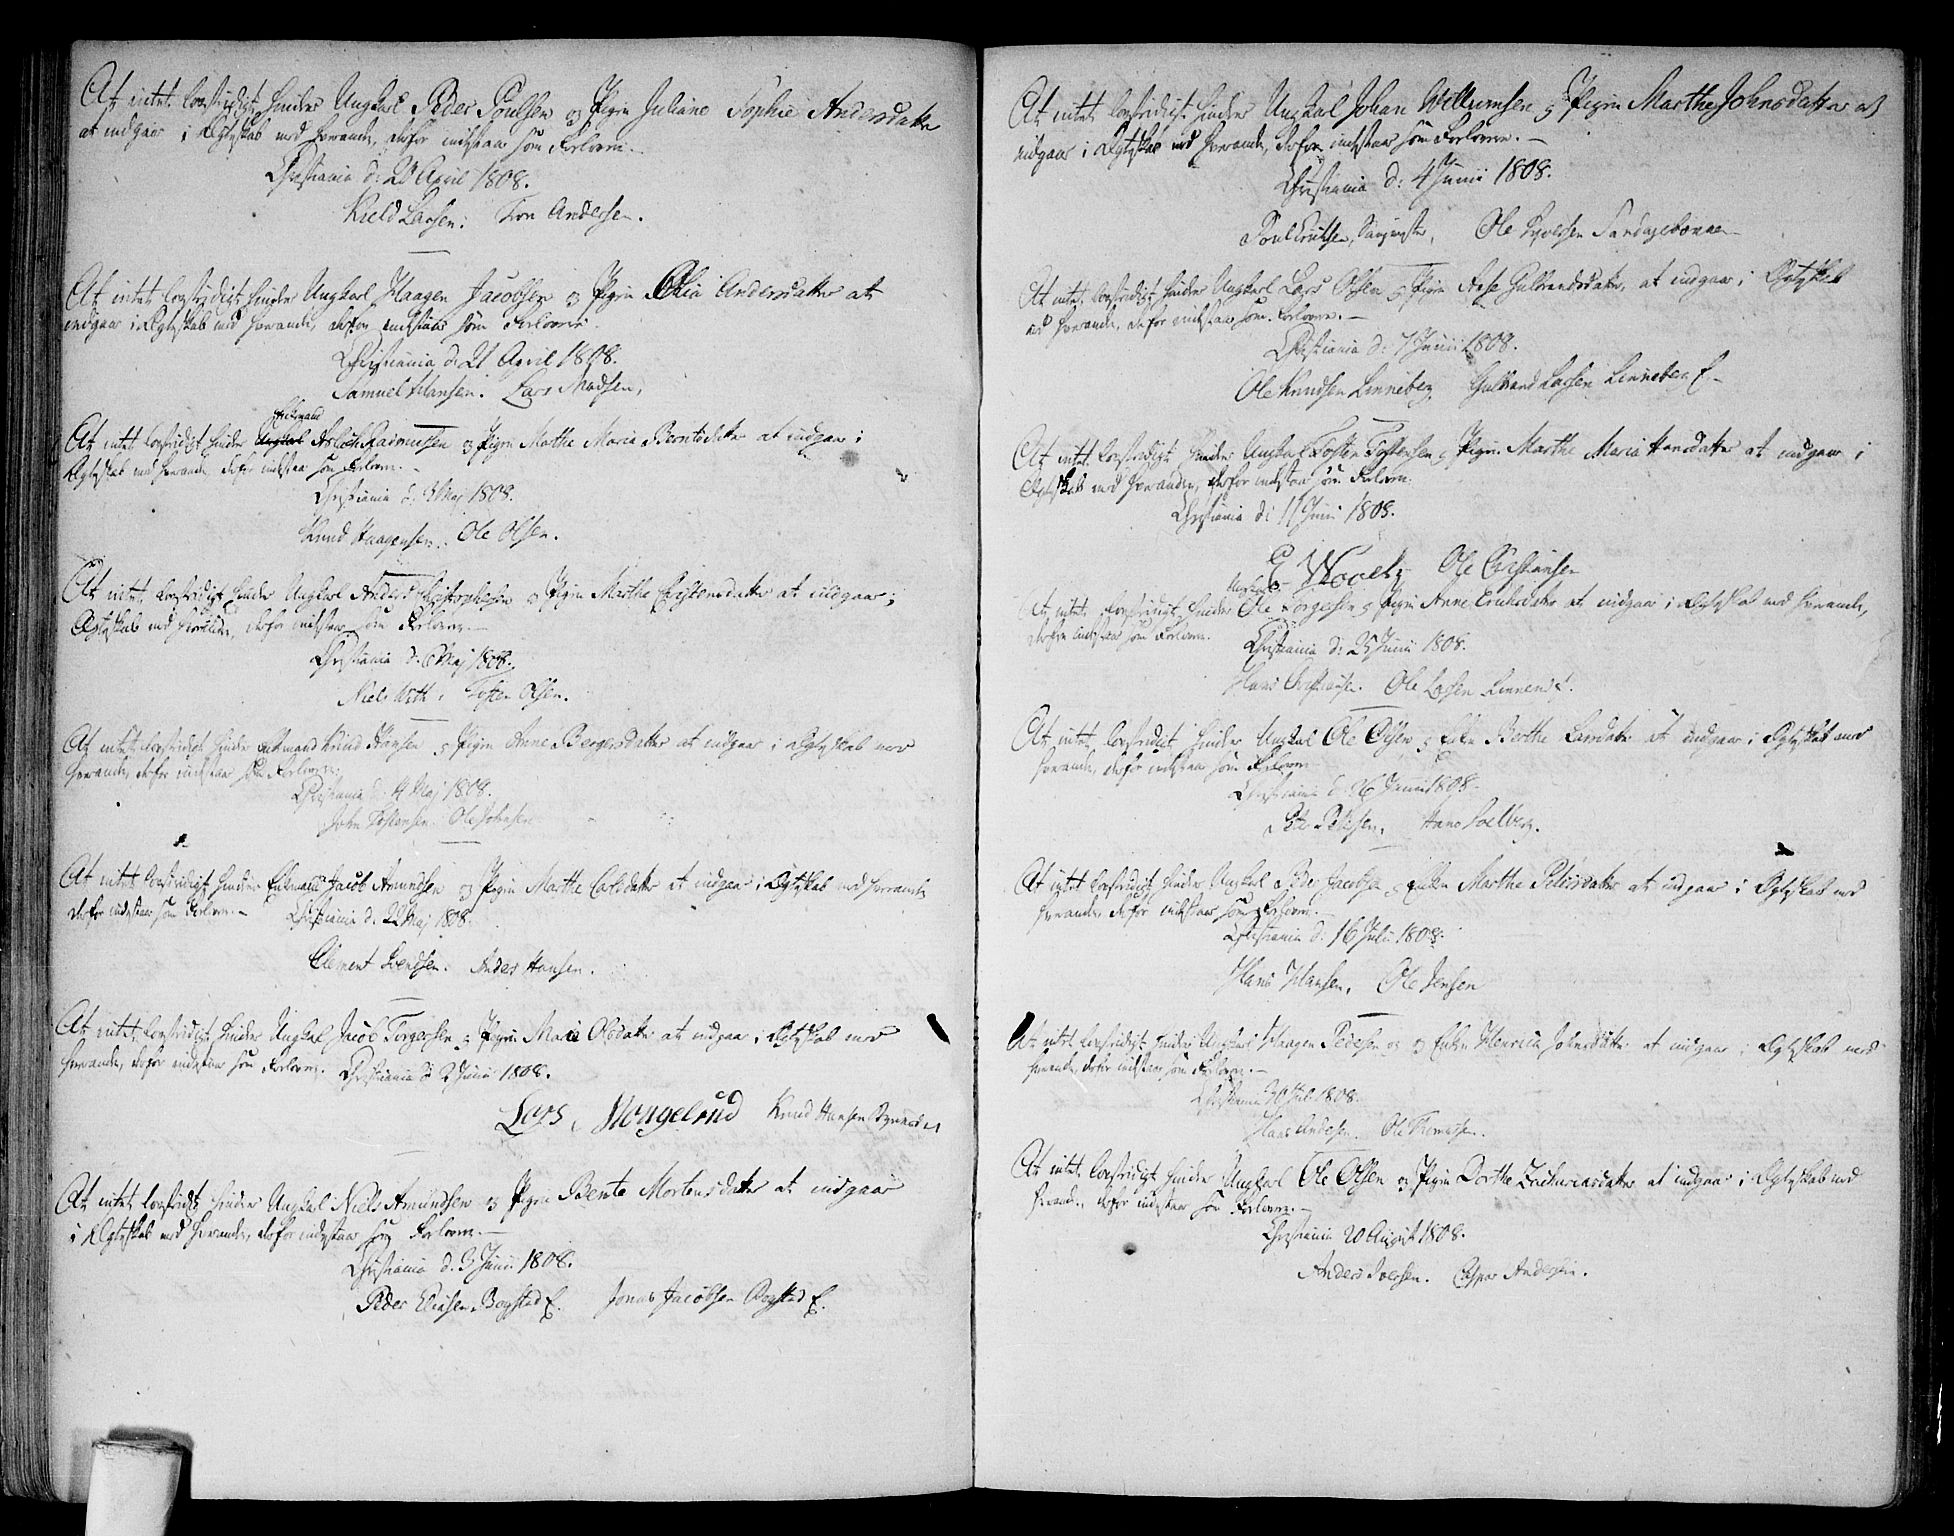 At intet lovstridigt hinder Ungkarl Peder Poulsen og Pigen Juliane Sophie Andersdatter
at indgaae i Ægteskab med hverandre, derfor indestaar som Forlovere.
Christiania d: 20 April 1808.
Kield Larsen. Andersen.
At intet lovstridigt hinder Ungkarl Haagen Jacobsen og Pigen Andersdatter at
indgaae i Ægteskab med hverandre, derfor indestaar som Forlovere.
Christiania d. 21 April 1808.
Samuel Hansen. Lars Madsen.
Enkemand
At intet lovstridigt hinder Ungkarl Aslach Rasmussen og Pigen Mathe Maria Berntsdatter at indgaae i
Ægteskab med hverandre derfor indestaar som Forlovere.
Christiania d. 3 Maj 1808.
Knud Haagensen. Ole Olsen.
At intet lovstridigt hinder Ungkarl Anders Christophersen og Pigen Marthe Christensdatter at indgaae i
Ægteskab med hverandre, derfor indestaar som Forlovere.
Christiania d. 6 Maj 1808.
Niels Olsen.
At intet lovstridigt hinder Enkemand Knud Hansen og Pigen Anne Bergersdatter at indgaae i Ægteskab med
hverandre, derfor indestaar som Forlovere.
Christiania d. 4 Maj 1808.
John Tostensen. Ole Johnsen
At intet lovstridigt hinder Enkemand Jacob Amundsen og Pigen Marthe Carlsdatter at indgaae i Ægteskab med hverandre
derfor indestaar som Forlovere.
Christiania d. 22 Maj 1808.
Clement Svendsen. Anders Hansen.
At intet lovstridigt hinder Ungkarl Jacob Torgersen og Pigen Maria Olsdatter at indgaae i Ægteskab med
hverandre, derfor indestaar som Forlovere. Christiania d. 2 Junii 1808.
Lars Mongelrud Knud Hansen
At intet lovstridigt hinder Ungkarl Niels Amundsen og Pigen Bente Mortensdatter at indgaae
i Ægteskab med hverandre, derfor indestaar som Forlovere.
Christiania d. 3 Junii 1808.
Peder Eliasen Bogstad E. Jonas Jacobsen Bogstad E.
At intet lovstridigt hinder Ungkarl Johan Willumsen og Pigen Marthe Johnsdatter at
indgaae i Ægteskab med hverandre, derfor indestaar som Forlovere.
Christiania d: 4 Junii 1808.
Poul Knutsen, Ole
At intet lovstridigt hinder Ungkarl Lars Olsen og Pigen Aase Gulbrandsdatter, at indgaae i Ægteskab
med hverandre, derfor indestaar som Forlovere.
Christiania d: 7 Junii 1808.
Ole Knudsen Linneberg Gulbrand Larsen Linneberg E.
At intet lovstridigt hinder Ungkarl Tosten Tostensen og Pigen Marthe Maria Hansdatter at indgaae i
Ægteskab med hverandre, derfor indestaar som Forlovere.
Christiania d: 11 Junii 1808.
Ole Christiansen
Ungkarl
At intet lovstridigt hinder Ole Torgersen og Pigen Anne Erichsdatter at indgaae i Ægteskab med hverandre,
derfor indestaar som Forlovere.
Christiania d: 25 Junii 1808.
Hans Christiansen. Ole Larsen
At intet lovstridigt hinder Ungkarl Ole Olsen og Enken Berthe Larsdatter at indgaae i Ægteskab med
hverandre, derfor indestaar som Forlovere
Christiania d. 26 Junii 1808.
Peder Pettersen. Hans Solberg.
At intet lovstridigt hinder Ungkarl Peder Jacobsen og Enken Marthe Pedersdatter at indgaae i Ægteskab med
hverandre, derfor indestaar som Forlovere.
Christiania d. 16 Julii 1808.
Hans Hansen. Ole Jensen
At intet lovstridigt hinder Ungkarl Haagen Pedersen og Enken Henrica Johnsdatter at indgaae i Ægteskab med
hverandre, derfor indestaar som Forlovere.
Christiania 30 Julii 1808.
Hans Andersen. Ole Thomassen.
At intet lovstridigt hinder Ungkarl Ole Olsen og Pigen Dorthe Zachariasdatter at indgaae i Ægteskab med
hverandre, derfor indestaar som Forlovere.
Christiania 20 August 1808.
Anders Iversen. Casper Andersen.